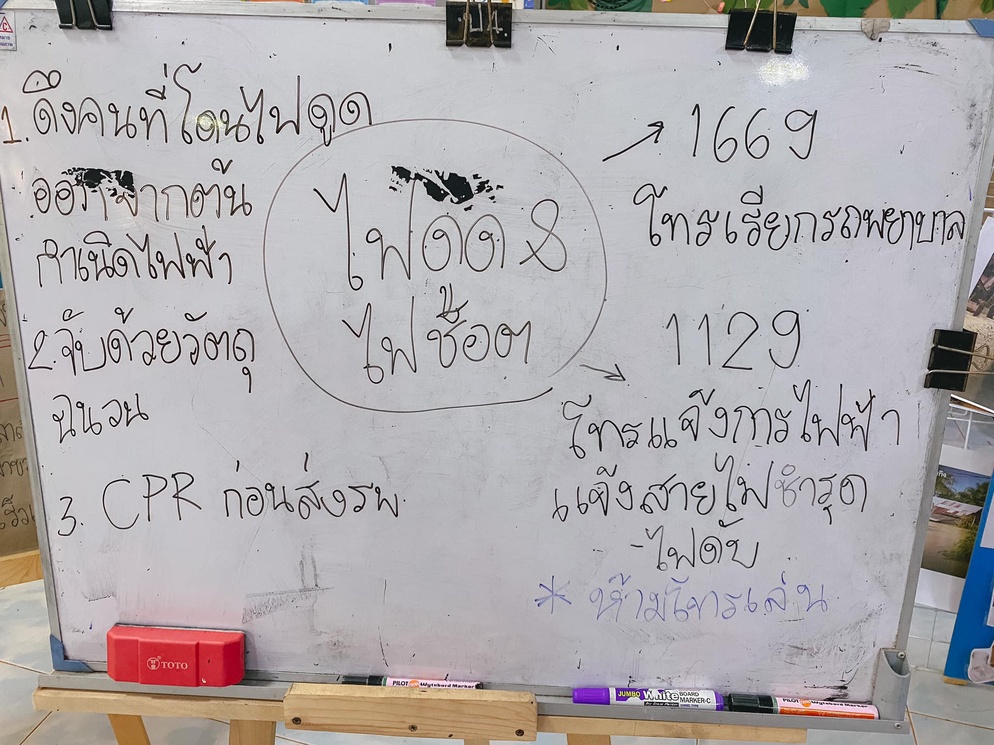 1. ดึงคนที่โดนไฟดูด
ออกจากต้น
กำเนิดไฟฟ้า
2. จับด้วยวัตถุ
ฉนวน
3. CPR ก่อนส่งรพ.
ไฟดูด &
ไฟช็อต
1669
โทรเรียกรถพยาบาล
1129
โทรแจ้งการไฟฟ้า
แจ้งสายไฟชำรุด
-ไฟดับ
* ห้ามโทรเล่น
TOTO
PILOT Wytebord Marker
JUMBO White BOARD MARKER-C
PILOT Wytebord Marker